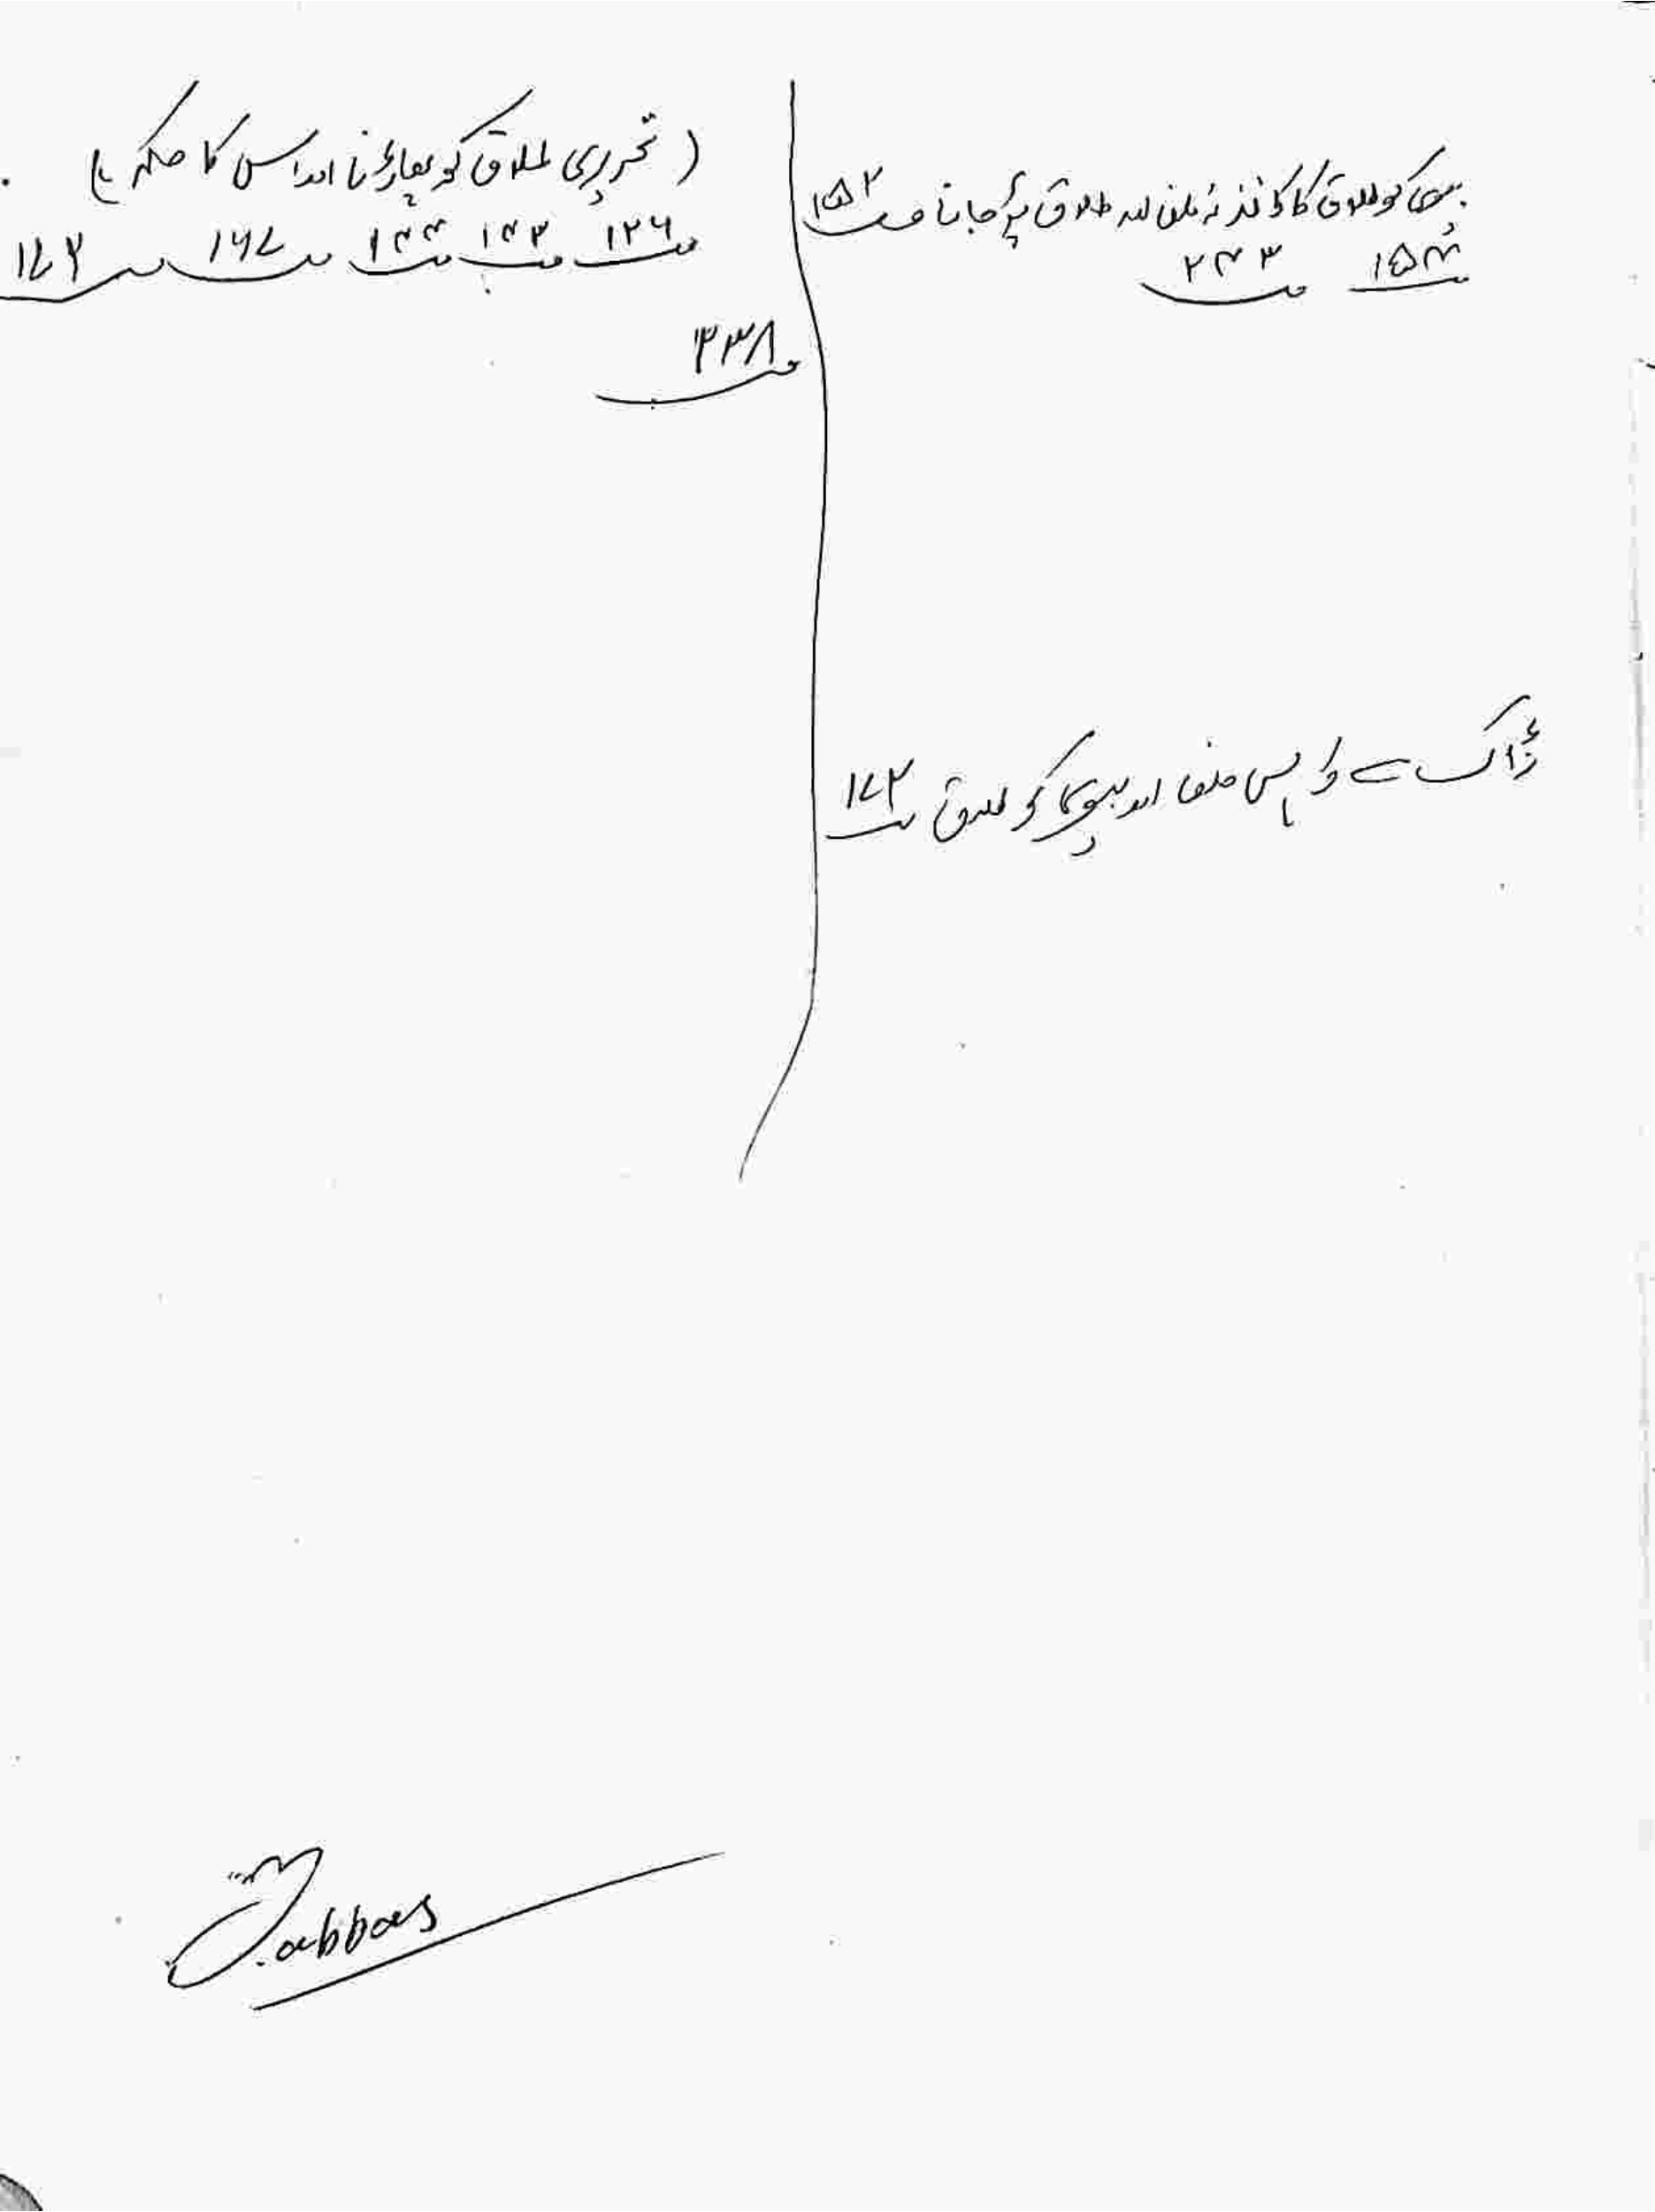 بیوی کو طلاق کا کاغذ نہ ملنا اور طلاق پڑ جانا ص ۱۵۲
ص ۱۵۴ ص ۲۴۳
ڈاک سے واپس ملنا اور بیوی کو طلاق ص ۱۷۲
(تحریری طلاق کو پھاڑنا اور اس کا حکم)
ص ۱۲۶ ص ۱۴۳ ص ۱۴۴ ص ۱۶۷ ص ۱۷۲
ص ۳۳۸
abbas